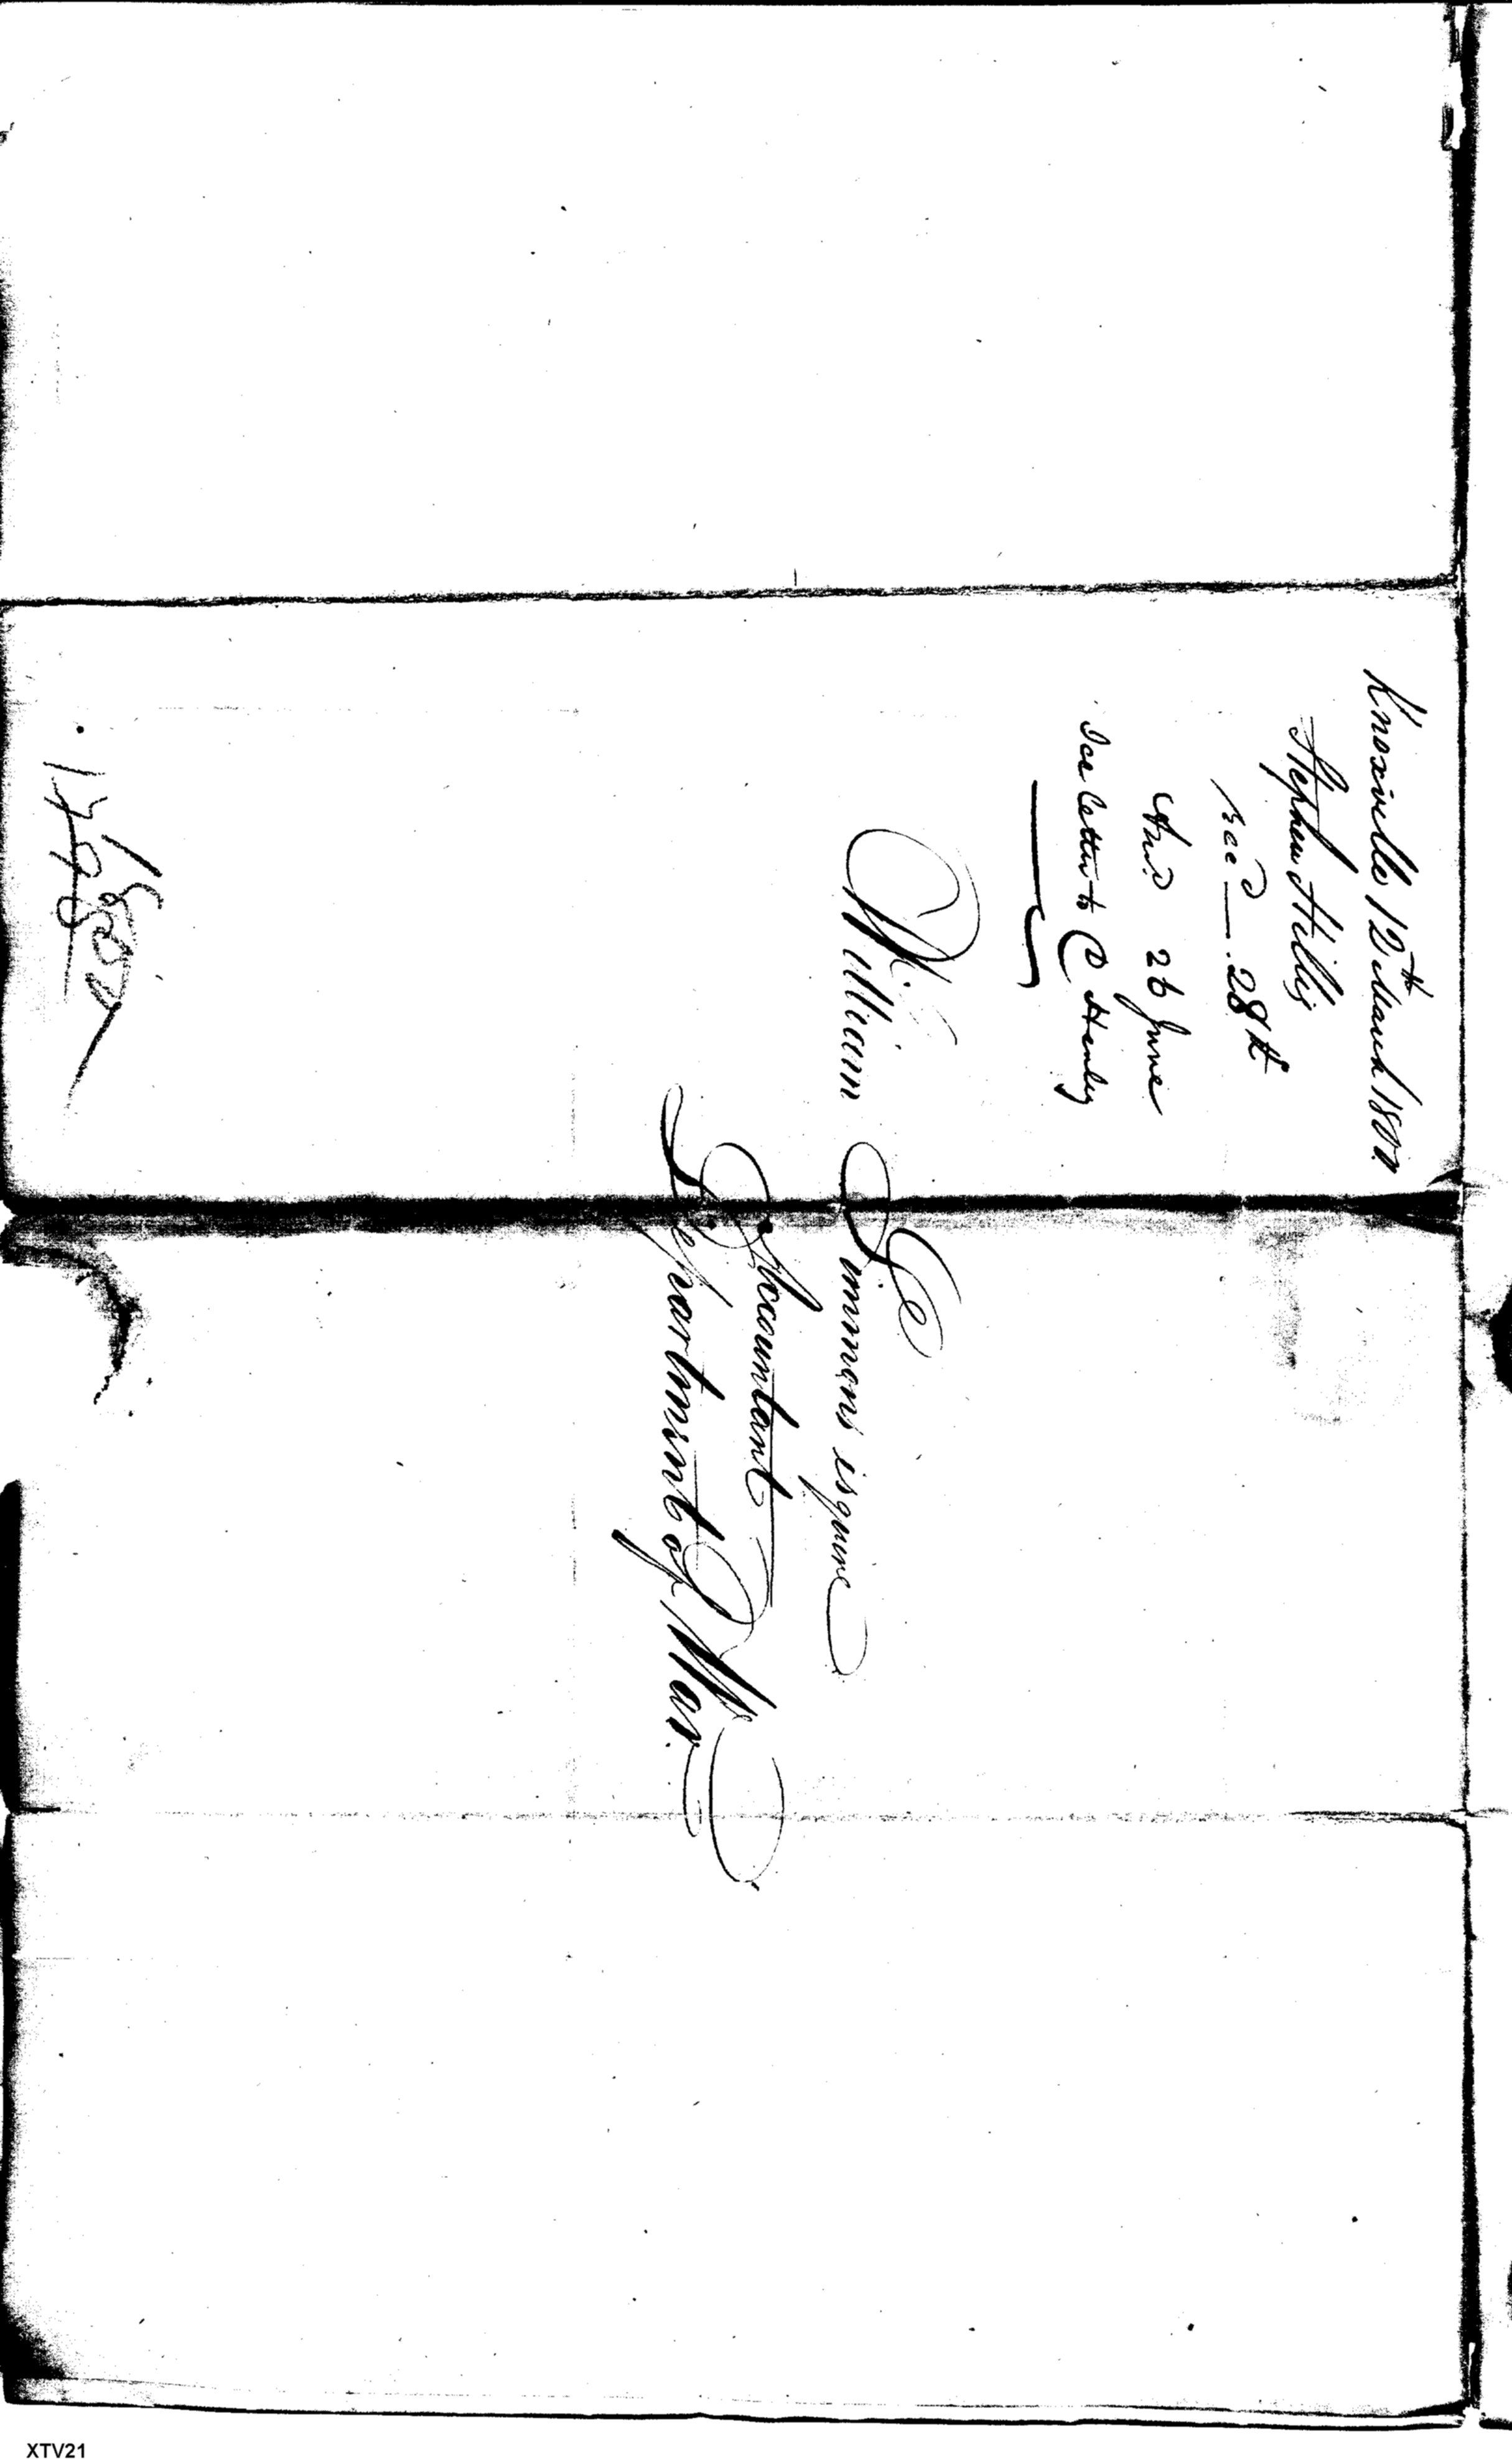 Knoxville 12th March 1800
Stephen Hillis
recd — 28th
Ansd 26 June
See letter to D Henley
William Simmons esquire
Accountant
Department of War
XTV21